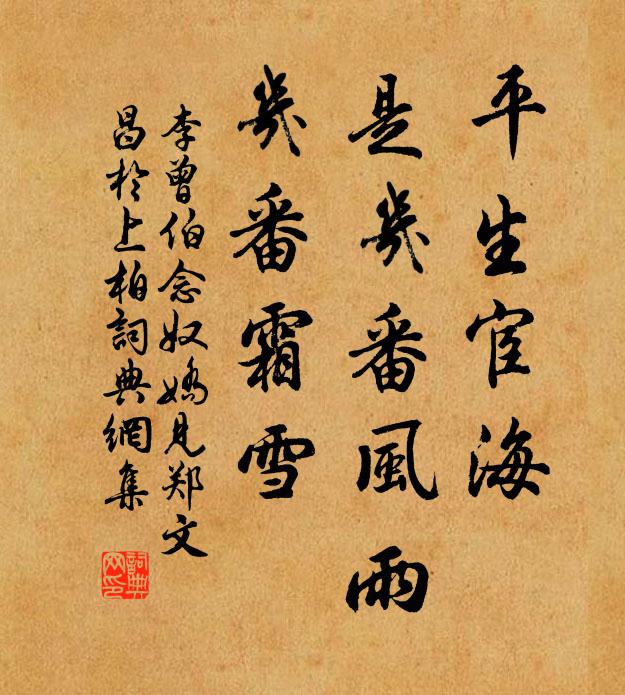 平生宦海
是幾番風雨
幾番霜雪
李曾伯念奴嬌見郑文
昌於上柏詞典網集
詞典
网印